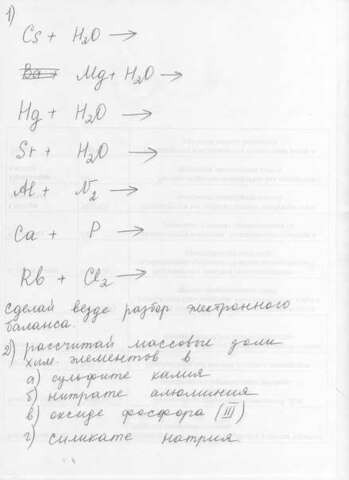 1)
Cs + H₂O →
Mg + H₂O →
Hg + H₂O →
Sr + H₂O →
Al + N₂ →
Ca + P →
Rb + Cl₂ →
сделай везде разбор электронного
баланса.
2) рассчитай массовые доли
хим. элементов в
а) сульфите калия
б) нитрате алюминия
в) оксиде фосфора (III)
г) силикате натрия